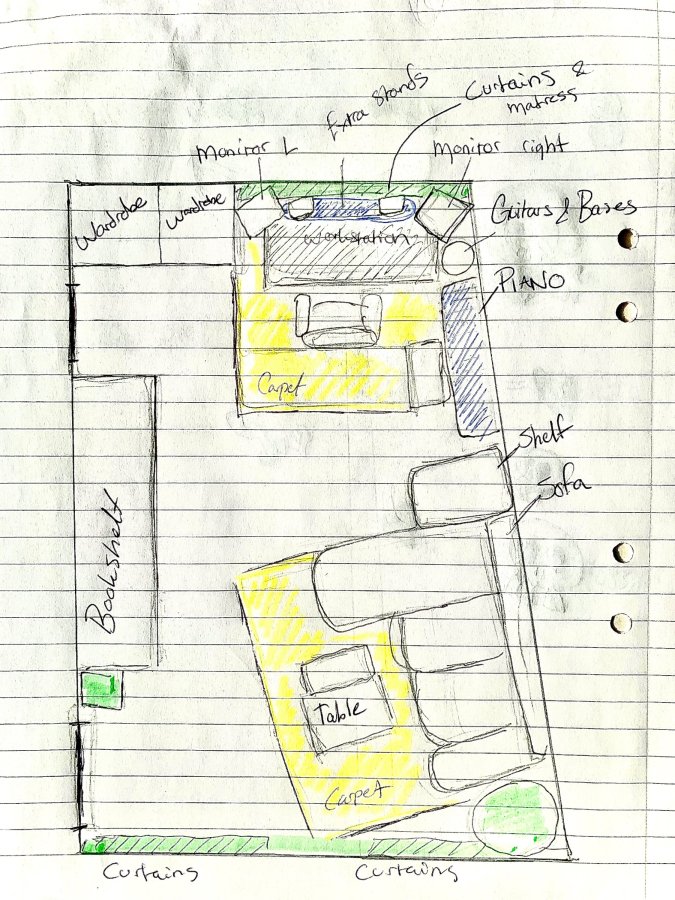 Extra stands
Curtains &
matress
Monitor L
Monitor right
Wardrobe
Wardrobe
Guitars & Bases
Workstation
PIANO
Carpet
Shelf
Sofa
Bookshelf
Table
Carpet
Curtains
Curtains